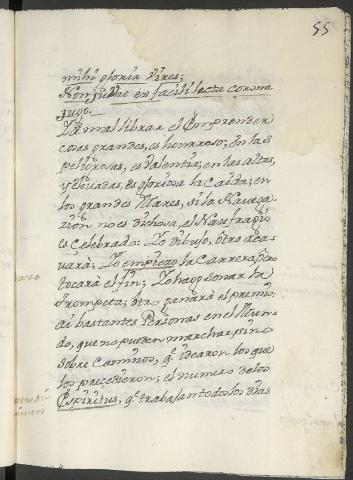 55
mihi gloria Vires;
Non juvat ex facili lecta corona
jugo.
mal librar el Emprender
cosas grandes, es honrroso; en las
peligrosas, es Valentia; en las altas,
y elevadas, es gloriosa la Caida; en
los grandes Mares, si la Navega-
zion no es dichosa, el Naufragio
es Celebrado: Yo dibujo, otro aca-
vará; Yo empiezo la Carrera, otro
tocará el fin; Yo hago sonar la
Trompeta; otro ganará el premio.
ai bastantes Personas en el Mun-
do, que no pueden marchar, sino
sobre Caminos, q.e idearon los que
los precedieron; el numero de los
Espiritus, q.e trabajan todos los dias